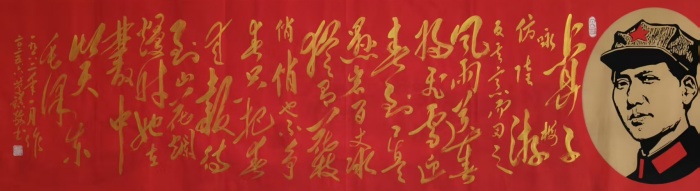 卜算子
咏梅
仿陆游
反其意而用之
风雨送春
归飞雪迎
春到已是
悬崖百丈冰
犹有花枝
俏俏也不争
春只把春
来报待
到山花烂
熳时她在
丛中
笑
毛泽东
一九六二年一月作